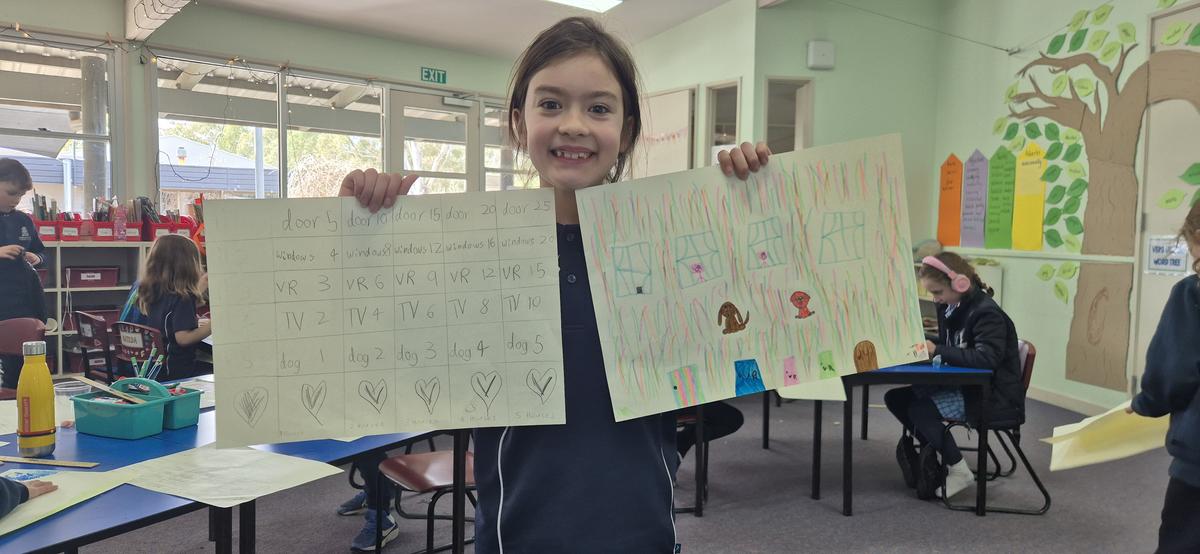 EXIT
door 5 door 10 door 15 door 20 door 25
windows 4 windows 8 windows 12 windows 16 windows 20
VR 3 VR 6 VR 9 VR 12 VR 15
TV 2 TV 4 TV 6 TV 8 TV 10
dog 1 dog 2 dog 3 dog 4 dog 5
5 houses
VR
VR
WORD TREE